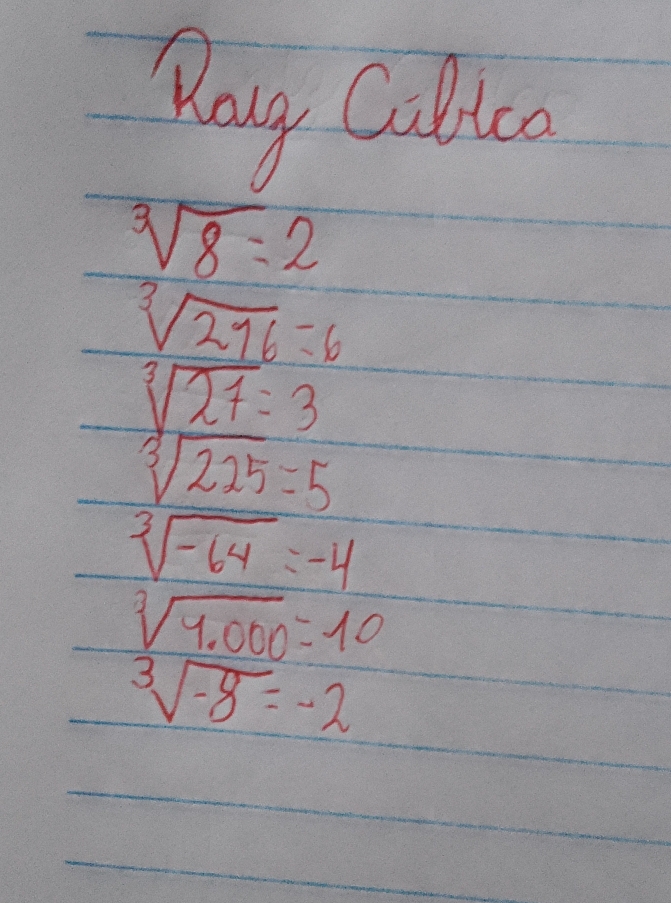 Raiz Cúbica
³√8 = 2
³√216 = 6
³√27 = 3
³√225 = 5
³√-64 = -4
³√1.000 = 10
³√-8 = -2